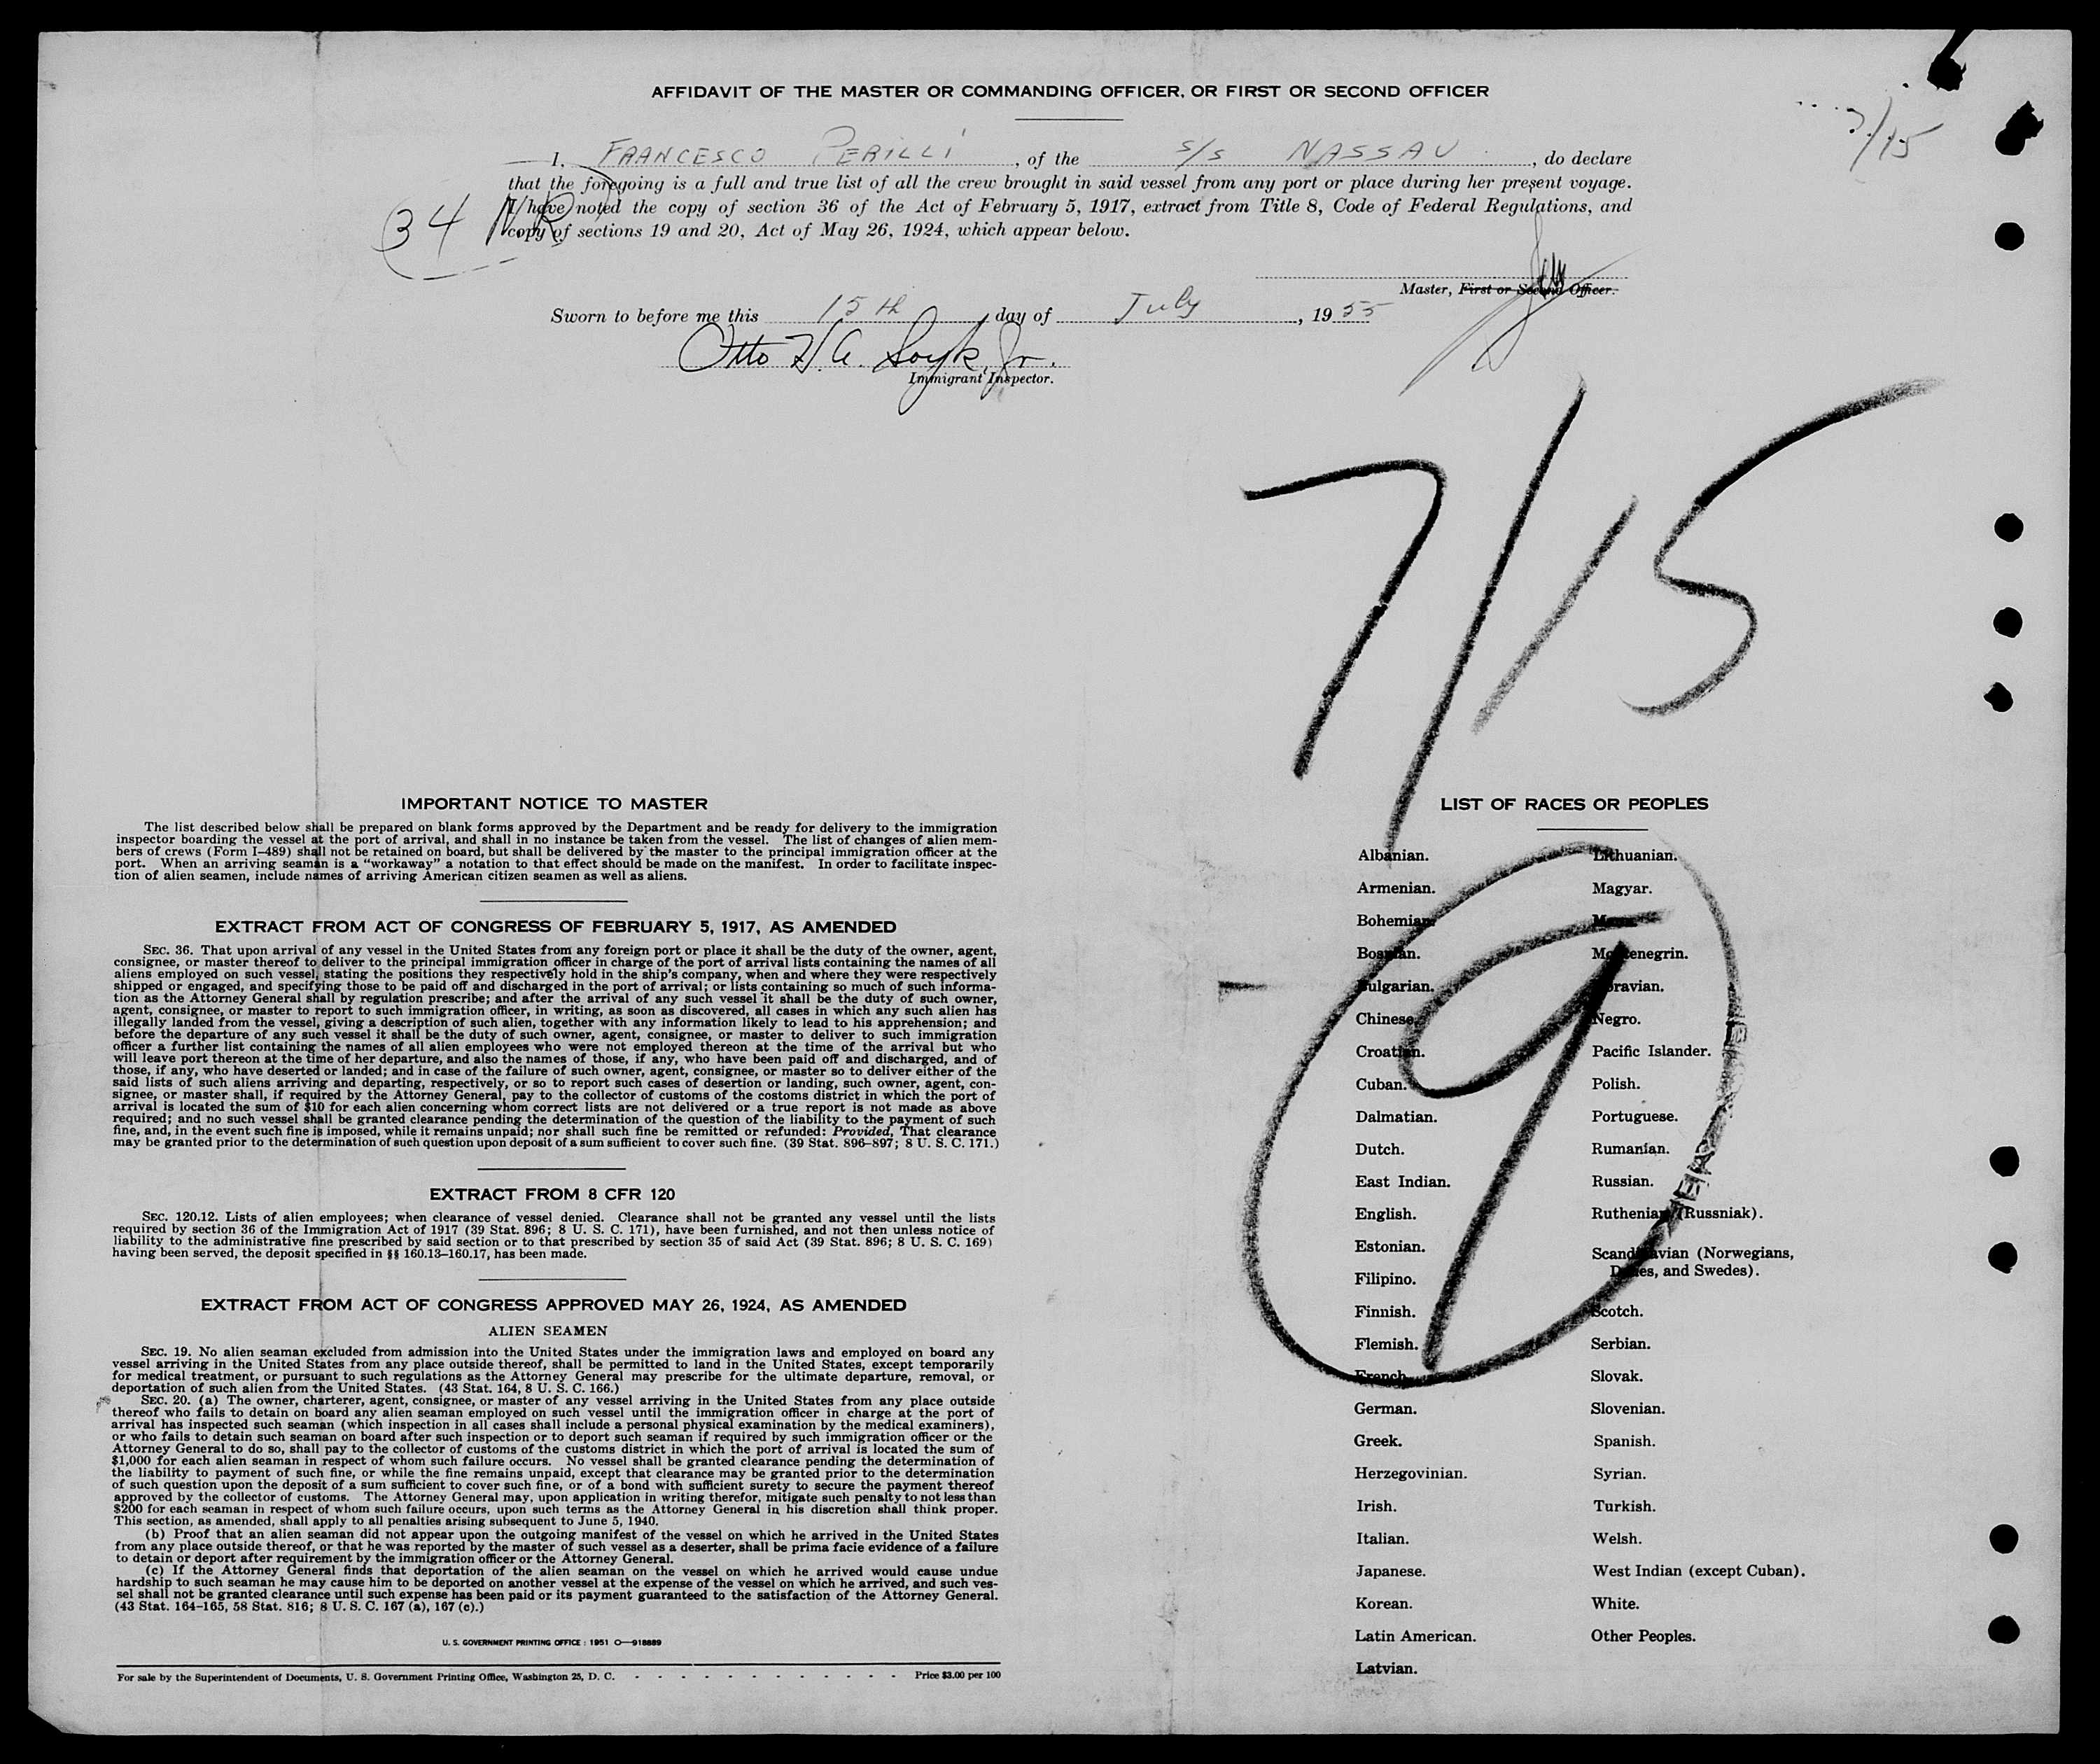 AFFIDAVIT OF THE MASTER OR COMMANDING OFFICER, OR FIRST OR SECOND OFFICER
7/15
I, FRANCESCO PERILLI, of the S/S NASSAU, do declare
that the foregoing is a full and true list of all the crew brought in said vessel from any port or place during her present voyage.
I have noted the copy of section 36 of the Act of February 5, 1917, extract from Title 8, Code of Federal Regulations, and
copy of sections 19 and 20, Act of May 26, 1924, which appear below.
34 NR
Master, First or Second Officer.
Sworn to before me this 15th day of July, 1955
Otto
Jr.
Immigrant Inspector.
7/15
IMPORTANT NOTICE TO MASTER
The list described below shall be prepared on blank forms approved by the Department and be ready for delivery to the immigration
inspector boarding the vessel at the port of arrival, and shall in no instance be taken from the vessel. The list of changes of alien mem-
bers of crews (Form I-489) shall not be retained on board, but shall be delivered by the master to the principal immigration officer at the
port. When an arriving seaman is a "workaway" a notation to that effect should be made on the manifest. In order to facilitate inspec-
tion of alien seamen, include names of arriving American citizen seamen as well as aliens.
EXTRACT FROM ACT OF CONGRESS OF FEBRUARY 5, 1917, AS AMENDED
SEC. 36. That upon arrival of any vessel in the United States from any foreign port or place it shall be the duty of the owner, agent,
consignee, or master thereof to deliver to the principal immigration officer in charge of the port of arrival lists containing the names of all
aliens employed on such vessel, stating the positions they respectively hold in the ship's company, when and where they were respectively
shipped or engaged, and specifying those to be paid off and discharged in the port of arrival; or lists containing so much of such informa-
tion as the Attorney General shall by regulation prescribe; and after the arrival of any such vessel it shall be the duty of such owner,
agent, consignee, or master to report to such immigration officer, in writing, as soon as discovered, all cases in which any such alien has
illegally landed from the vessel, giving a description of such alien, together with any information likely to lead to his apprehension; and
before the departure of any such vessel it shall be the duty of such owner, agent, consignee, or master to deliver to such immigration
officer a further list containing the names of all alien employees who were not employed thereon at the time of the arrival but who
will leave port thereon at the time of her departure, and also the names of those, if any, who have been paid off and discharged, and of
those, if any, who have deserted or landed; and in case of the failure of such owner, agent, consignee, or master so to deliver either of the
said lists of such aliens arriving and departing, respectively, or so to report such cases of desertion or landing, such owner, agent, con-
signee, or master shall, if required by the Attorney General, pay to the collector of customs of the costoms district in which the port of
arrival is located the sum of $10 for each alien concerning whom correct lists are not delivered or a true report is not made as above
required; and no such vessel shall be granted clearance pending the determination of the question of the liability to the payment of such
fine, and, in the event such fine is imposed, while it remains unpaid; nor shall such fine be remitted or refunded: Provided, That clearance
may be granted prior to the determination of such question upon deposit of a sum sufficient to cover such fine. (39 Stat. 896-897; 8 U. S. C. 171.)
EXTRACT FROM 8 CFR 120
SEC. 120.12. Lists of alien employees; when clearance of vessel denied. Clearance shall not be granted any vessel until the lists
required by section 36 of the Immigration Act of 1917 (39 Stat. 896; 8 U. S. C. 171), have been furnished, and not then unless notice of
liability to the administrative fine prescribed by said section or to that prescribed by section 35 of said Act (39 Stat. 896; 8 U. S. C. 169)
having been served, the deposit specified in §§ 160.13-160.17, has been made.
EXTRACT FROM ACT OF CONGRESS APPROVED MAY 26, 1924, AS AMENDED
ALIEN SEAMEN
SEC. 19. No alien seaman excluded from admission into the United States under the immigration laws and employed on board any
vessel arriving in the United States from any place outside thereof, shall be permitted to land in the United States, except temporarily
for medical treatment, or pursuant to such regulations as the Attorney General may prescribe for the ultimate departure, removal, or
deportation of such alien from the United States. (43 Stat. 164, 8 U. S. C. 166.)
SEC. 20. (a) The owner, charterer, agent, consignee, or master of any vessel arriving in the United States from any place outside
thereof who fails to detain on board any alien seaman employed on such vessel until the immigration officer in charge at the port of
arrival has inspected such seaman (which inspection in all cases shall include a personal physical examination by the medical examiners),
or who fails to detain such seaman on board after such inspection or to deport such seaman if required by such immigration officer or the
Attorney General to do so, shall pay to the collector of customs of the customs district in which the port of arrival is located the sum of
$1,000 for each alien seaman in respect of whom such failure occurs. No vessel shall be granted clearance pending the determination of
the liability to payment of such fine, or while the fine remains unpaid, except that clearance may be granted prior to the determination
of such question upon the deposit of a sum sufficient to cover such fine, or of a bond with sufficient surety to secure the payment thereof
approved by the collector of customs. The Attorney General may, upon application in writing therefor, mitigate such penalty to not less than
$200 for each seaman in respect of whom such failure occurs, upon such terms as the Attorney General in his discretion shall think proper.
This section, as amended, shall apply to all penalties arising subsequent to June 5, 1940.
(b) Proof that an alien seaman did not appear upon the outgoing manifest of the vessel on which he arrived in the United States
from any place outside thereof, or that he was reported by the master of such vessel as a deserter, shall be prima facie evidence of a failure
to detain or deport after requirement by the immigration officer or the Attorney General.
(c) If the Attorney General finds that deportation of the alien seaman on the vessel on which he arrived would cause undue
hardship to such seaman he may cause him to be deported on another vessel at the expense of the vessel on which he arrived, and such ves-
sel shall not be granted clearance until such expense has been paid or its payment guaranteed to the satisfaction of the Attorney General.
(43 Stat. 164-165, 58 Stat. 816; 8 U. S. C. 167 (a), 167 (c).)
U. S. GOVERNMENT PRINTING OFFICE : 1951 O—918889
For sale by the Superintendent of Documents, U. S. Government Printing Office, Washington 25, D. C. - - - - - - - - - - - - Price $3.00 per 100
LIST OF RACES OR PEOPLES
Albanian.
Armenian.
Bohemian.
Bosnian.
Bulgarian.
Chinese.
Croatian.
Cuban.
Dalmatian.
Dutch.
East Indian.
English.
Estonian.
Filipino.
Finnish.
Flemish.
French.
German.
Greek.
Herzegovinian.
Irish.
Italian.
Japanese.
Korean.
Latin American.
Latvian.
Lithuanian.
Magyar.
Montenegrin.
Moravian.
Negro.
Pacific Islander.
Polish.
Portuguese.
Rumanian.
Russian.
Ruthenian (Russniak).
Scandinavian (Norwegians,
Danes, and Swedes).
Scotch.
Serbian.
Slovak.
Slovenian.
Spanish.
Syrian.
Turkish.
Welsh.
West Indian (except Cuban).
White.
Other Peoples.
9